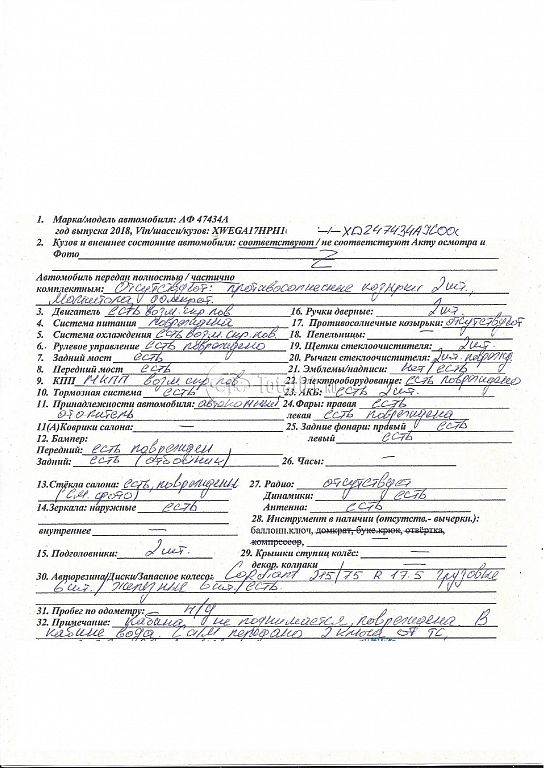 1. Марка/модель автомобиля: АФ 47434А
год выпуска 2018, Vin/шасси/кузов: XWEGA17HPH1
2. Кузов и внешнее состояние автомобиля: соответствуют / не соответствуют Акту осмотра и
Фото
Автомобиль передан полностью / частично
комплектным: Отсутствует: противосолнечные козырки 2 шт,
Магнитола, домкрат.
3. Двигатель есть возм. скр. пов 16. Ручки дверные: 2 шт.
4. Система питания повреждена 17. Противосолнечные козырьки: отсутствуют
5. Система охлаждения есть возм. скр. пов. 18. Пепельницы: —
6. Рулевое управление есть повреждено 19. Щетки стеклоочистителя: 2 шт.
7. Задний мост есть 20. Рычаги стеклоочистителя: 2 шт.
8. Передний мост есть 21. Эмблемы/надписи: нет / есть
9. КПП МКПП возм. скр. пов 22. Электрооборудование: есть повреждено
10. Тормозная система есть 23. АКБ: есть 2 шт.
11. Принадлежности автомобиля: автономный 24. Фары: правая есть
отопитель левая есть повреждена
11(А)Коврики салона: — 25. Задние фонари: правый есть
12. Бампер: левый есть
Передний: есть поврежден
Задний: есть (отбойник) 26. Часы: —
13.Стёкла салона: есть, повреждены 27. Радио: отсутствует
(см. фото) Динамики: есть
14.Зеркала: наружные есть Антенна: есть
28. Инструмент в наличии (отсутств.- вычеркн.):
внутреннее — баллонн.ключ, домкрат, букс.крюк, отвёртка,
компрессор,
15. Подголовники: 2 шт. 29. Крышки ступиц колёс: —
декор. колпаки —
30. Авторезина/Диски/Запасное колесо: Cordiant 215/75 R 17.5 грузовые
6 шт. / железные 6 шт / есть.
31. Пробег по одометру: н/д
32. Примечание: Кабина не поднимается, повреждена. В
кабине вода. передано 2 ключа от ТС